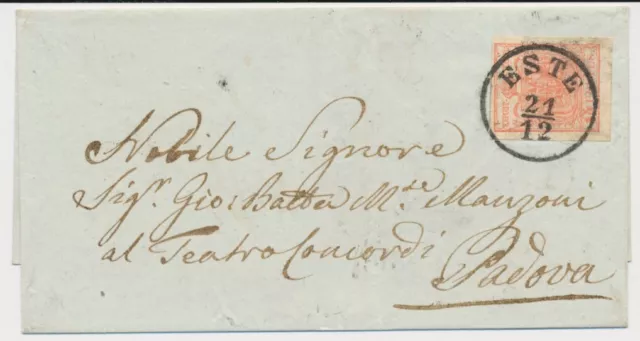 ESTE
21
12
Nobile Signore
Sigr. Gio: Batta Mse. Manzoni
al Teatro Concordi
Padova